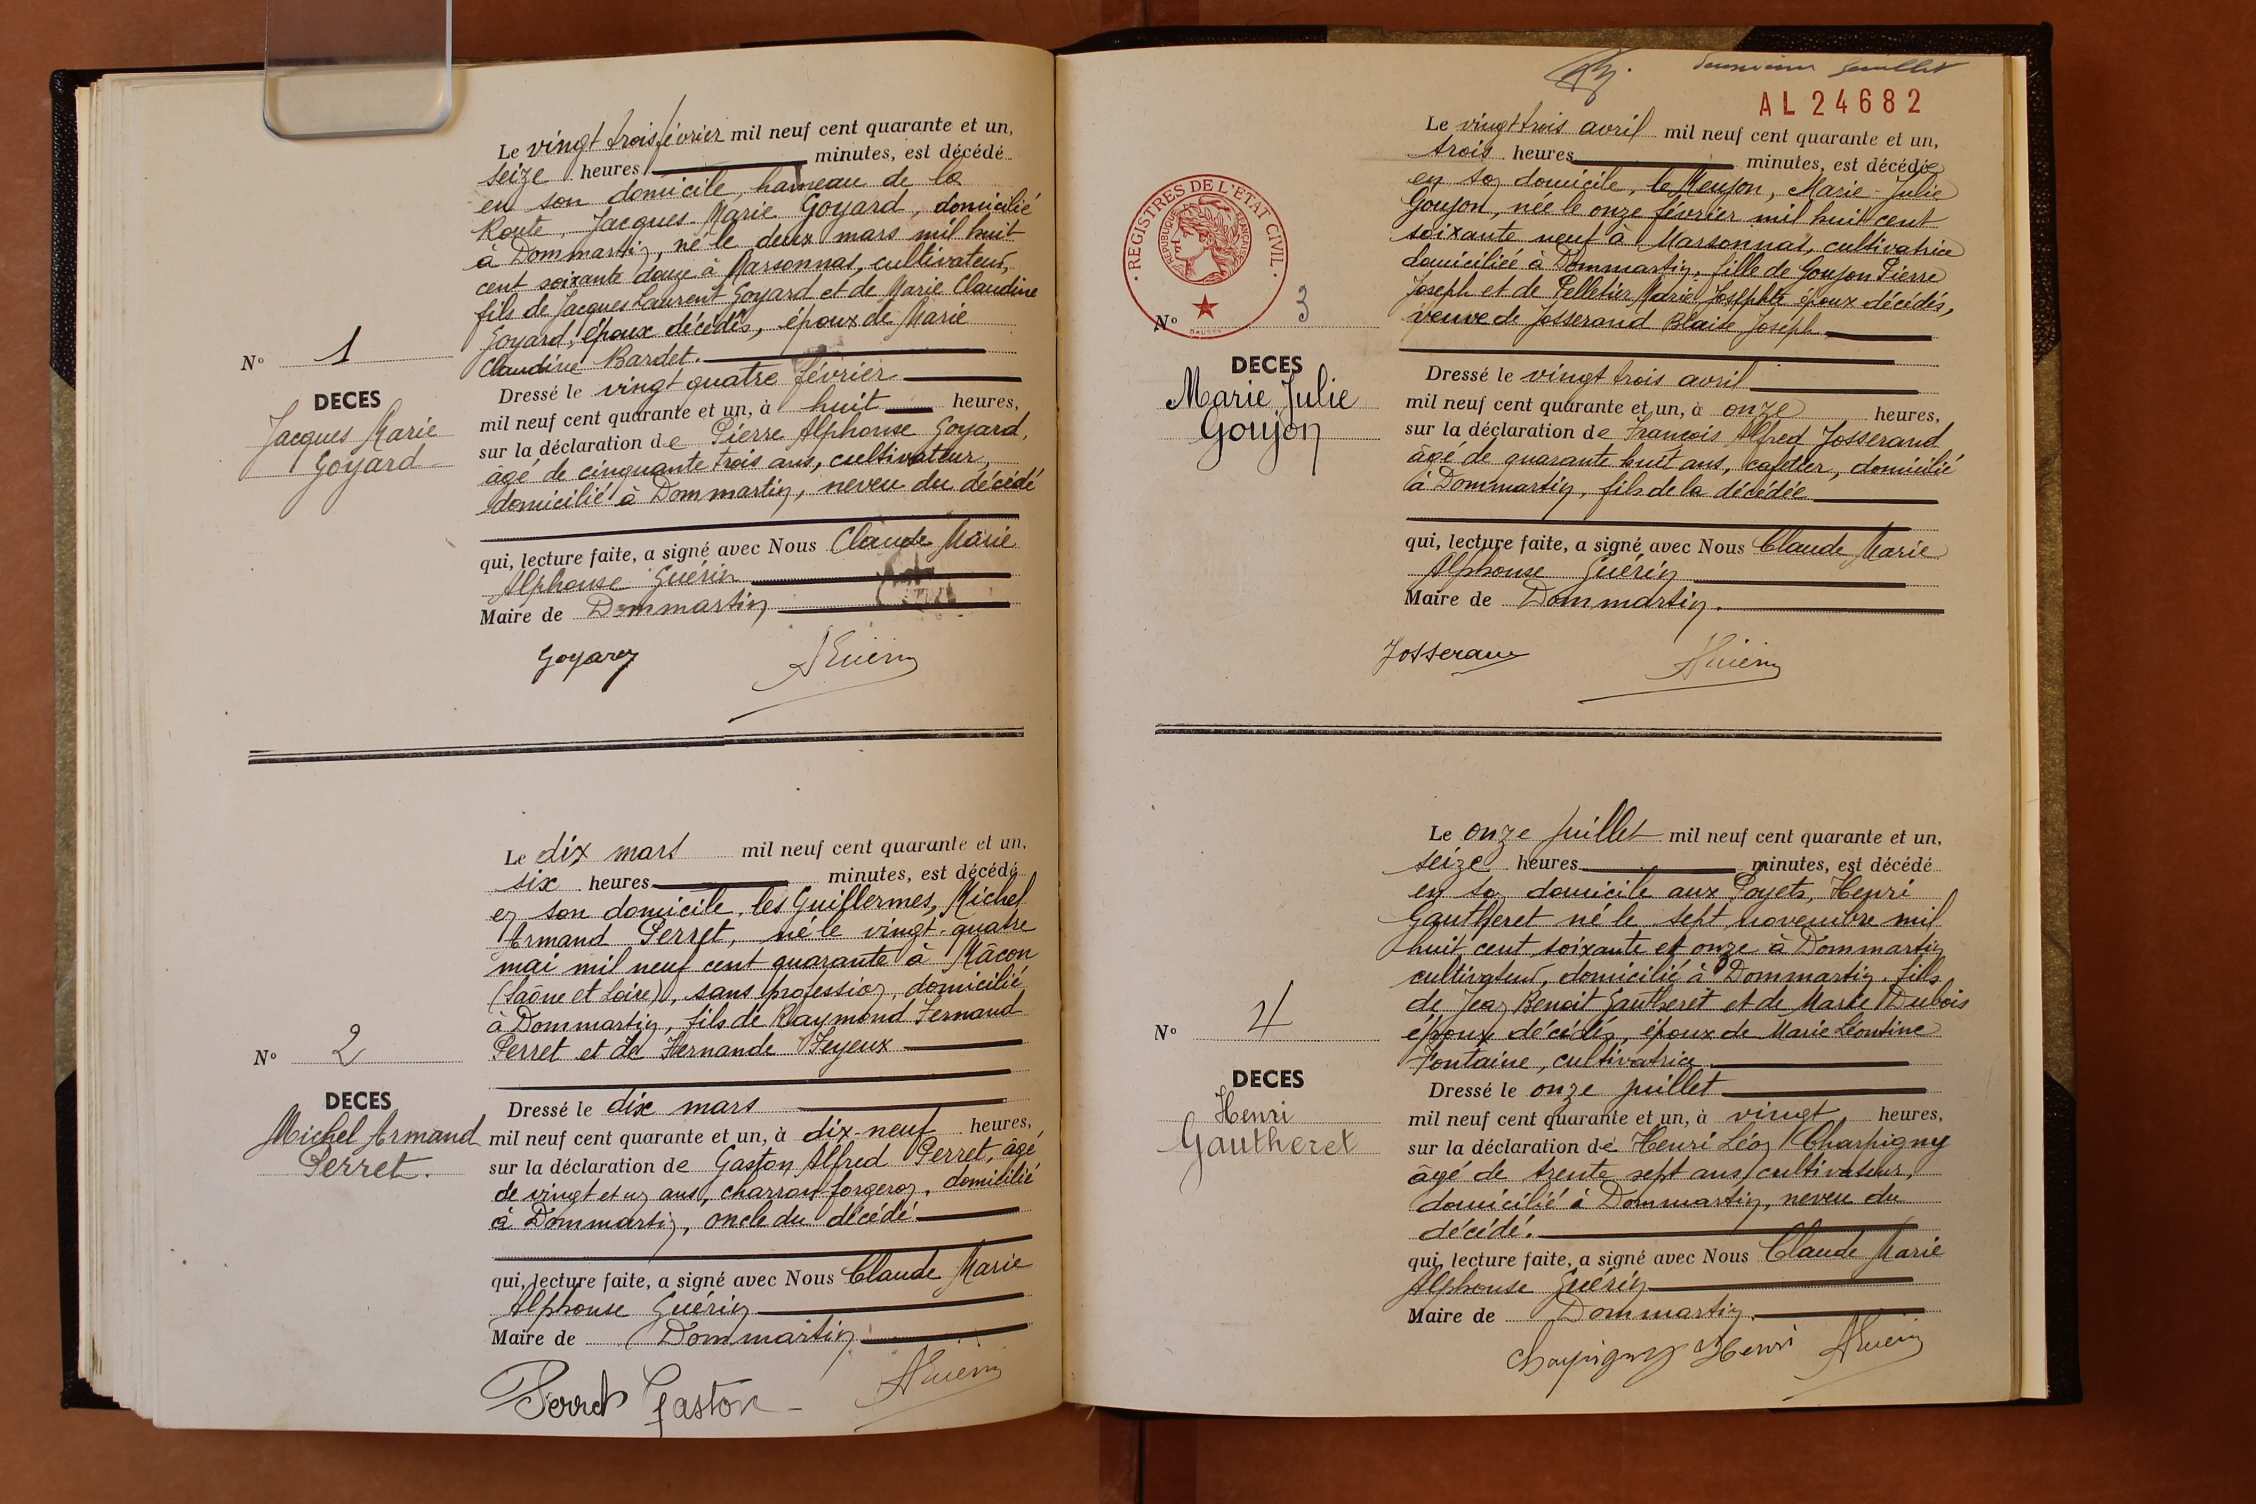 Le vingt trois février mil neuf cent quarante et un,
seize heures minutes, est décédé
en son domicile, hameau de la
Route, Jacques Marie Goyard, domicilié
à Dommartin, né le deux mars mil huit
cent soixante douze à Marsonnas, cultivateur,
fils de Jacques Laurent Goyard et de Marie Claudine
Goyard, époux décédés, époux de Marie
Claudine Bardet.
Nº 1
DECES
Jacques Marie
Goyard
Dressé le vingt quatre février
mil neuf cent quarante et un, à huit heures,
sur la déclaration de Pierre Alphonse Goyard,
âgé de cinquante trois ans, cultivateur,
domicilié à Dommartin, neveu du décédé
qui, lecture faite, a signé avec Nous Claude Marie
Alphonse Guérin
Maire de Dommartin
Goyard AGuérin
Le dix mars mil neuf cent quarante et un,
six heures minutes, est décédé
en son domicile, les Guillermes, Michel
Armand Perret, né le vingt-quatre
mai mil neuf cent quarante à Mâcon
(Saône et Loire), sans profession, domicilié
à Dommartin, fils de Raymond Fernand
Perret et de Fernande Feyeux
Nº 2
DECES
Michel Armand
Perret.
Dressé le dix mars
mil neuf cent quarante et un, à dix-neuf heures,
sur la déclaration de Gaston Alfred Perret, âgé
de vingt et un ans, charron-forgeron, domicilié
à Dommartin, oncle du décédé
qui, lecture faite, a signé avec Nous Claude Marie
Alphonse Guérin
Maire de Dommartin
Perret Gaston AGuérin
feuillet
AL 24682
REGISTRES DE L'ETAT CIVIL
REPUBLIQUE FRANÇAISE
Le vingt trois avril mil neuf cent quarante et un,
trois heures minutes, est décédée
en son domicile, le Meujon, Marie-Julie
Goujon, née le onze février mil huit cent
soixante neuf à Marsonnas, cultivatrice
domiciliée à Dommartin, fille de Goujon Pierre
Joseph et de Pelletier Marie Josephte époux décédés,
veuve de Josserand Blaise Joseph
Nº 3
DECES
Marie Julie
Goujon
Dressé le vingt trois avril
mil neuf cent quarante et un, à onze heures,
sur la déclaration de François Alfred Josserand
âgé de quarante huit ans, cafetier, domicilié
à Dommartin, fils de la décédée
qui, lecture faite, a signé avec Nous Claude Marie
Alphonse Guérin
Maire de Dommartin.
Josserand AGuérin
Le onze juillet mil neuf cent quarante et un,
seize heures minutes, est décédé
en son domicile aux Poyets, Henri
Gautheret né le sept novembre mil
huit cent soixante et onze à Dommartin
cultivateur, domicilié à Dommartin, fils
de Jean Benoit Gautheret et de Marie Dubois
époux décédés, époux de Marie Léontine
Fontaine, cultivatrice
Nº 4
DECES
Henri
Gautheret
Dressé le onze juillet
mil neuf cent quarante et un, à vingt heures,
sur la déclaration de Henri Léon Charpigny
âgé de trente sept ans, cultivateur,
domicilié à Dommartin, neveu du
décédé.
qui, lecture faite, a signé avec Nous Claude Marie
Alphonse Guérin
Maire de Dommartin.
Charpigny Henri AGuérin